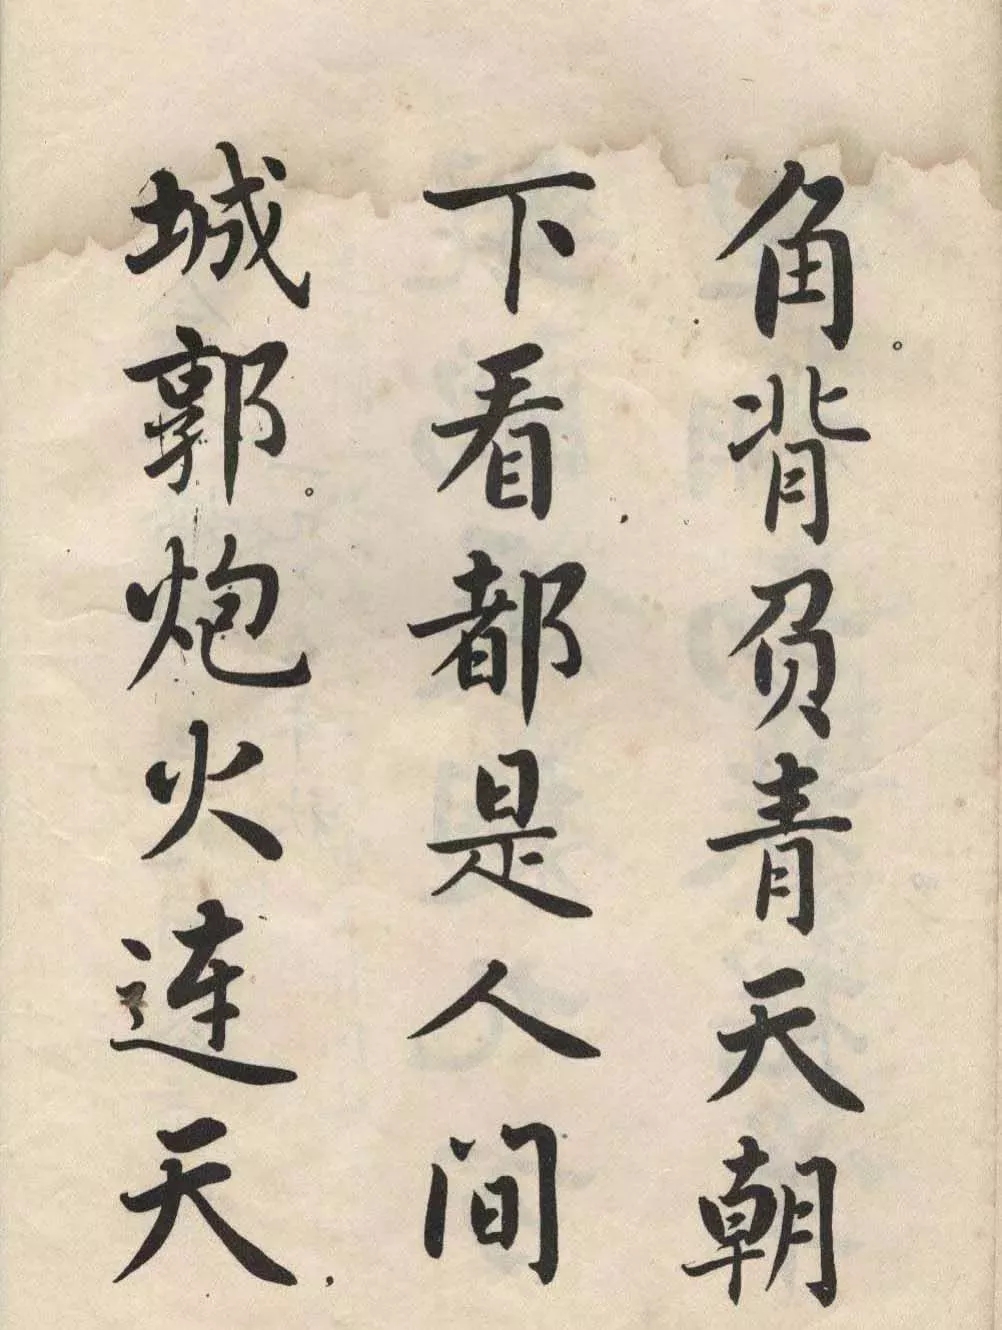 角。背负青天朝
下看,都是人间
城郭。炮火连天,